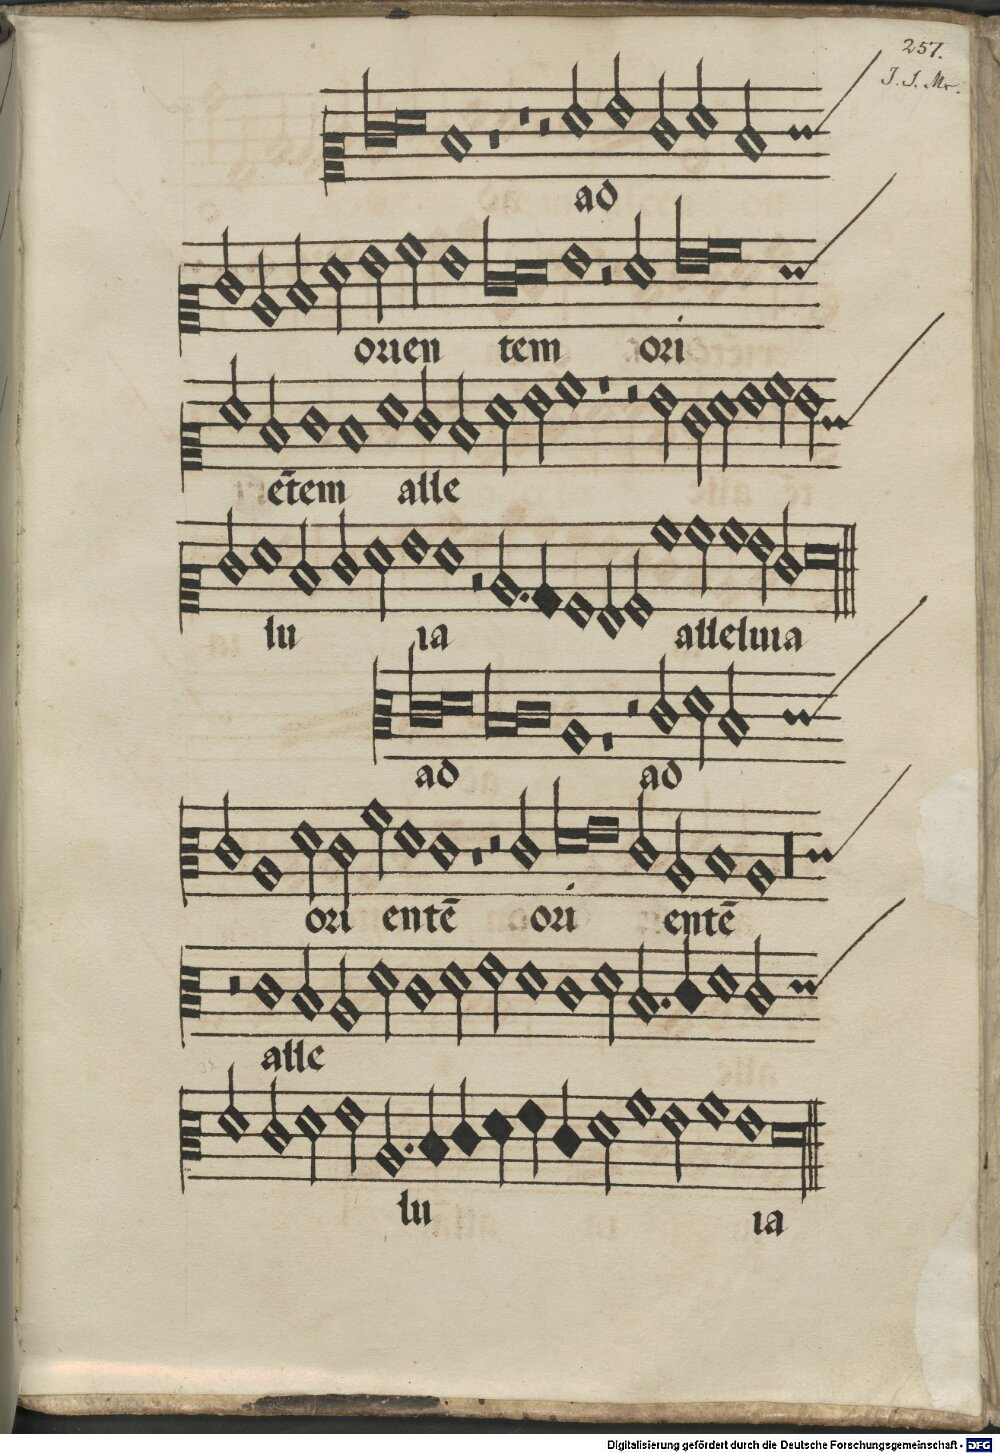 257.
J. J. Mr.
ad
orien tem ori
ētem alle
lu ia alleluia
ad ad
ori entē ori entē
alle
lu ia
Digitalisierung gefördert durch die Deutsche Forschungsgemeinschaft - DFG